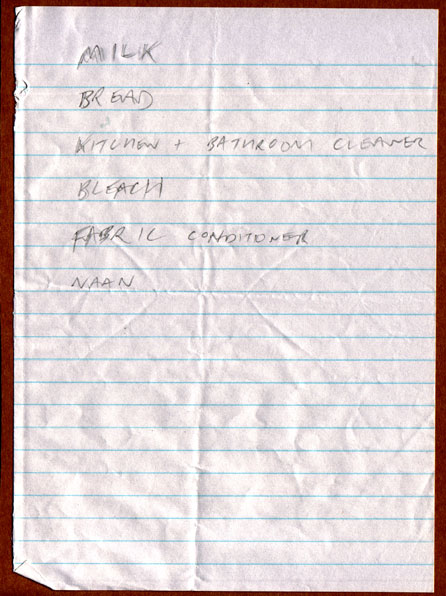 MILK
BREAD
KITCHEN + BATHROOM CLEANER
BLEACH
FABRIC CONDITONER
NAAN